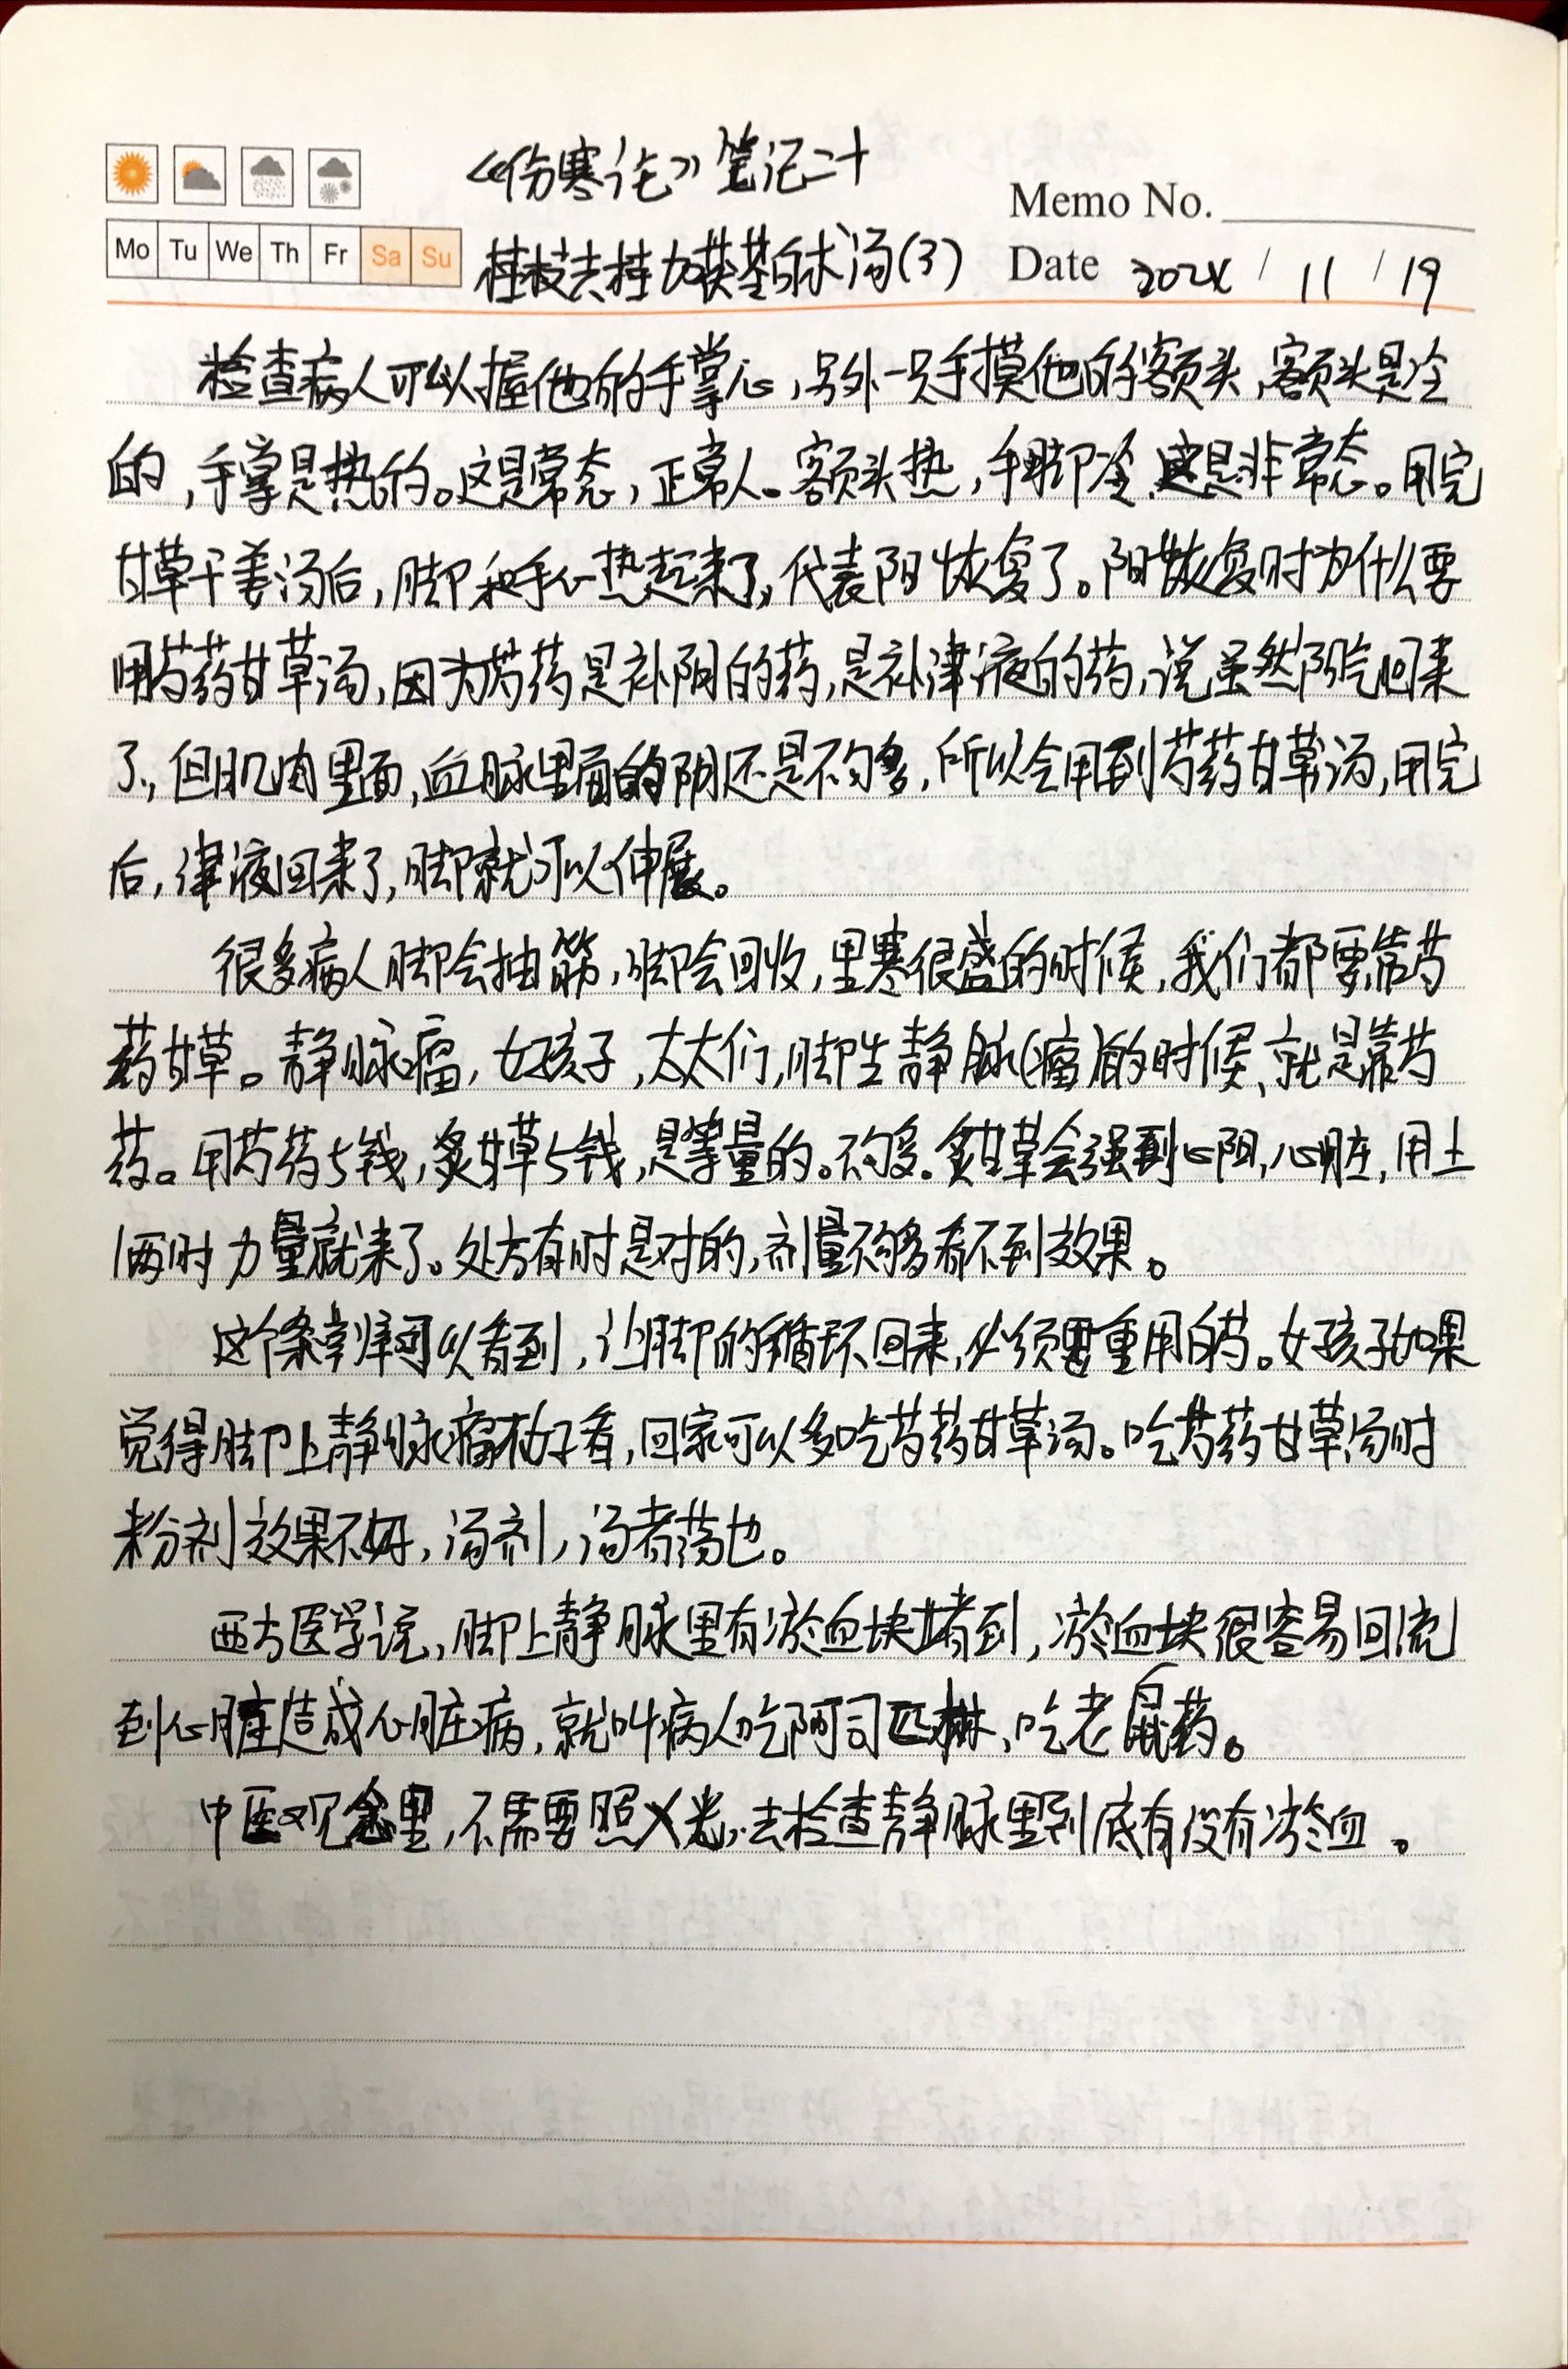 《伤寒论》笔记二十
Memo No.
Mo Tu We Th Fr Sa Su
桂枝去桂加茯苓白术汤(3)
Date 2024 / 11 / 19
检查病人可以握他的手掌心,另外一只手摸他的额头,额头是冷
的,手掌是热的。这是常态,正常人。额头热,手脚冷,这是非常态。用完
甘草干姜汤后,脚和手心热起来了,代表阳恢复了。阳恢复时为什么要
用芍药甘草汤,因为芍药是补阴的药,是补津液的药,说虽然阳气回来
了,但肌肉里面,血脉里面的阴还是不够多,所以会用到芍药甘草汤,用完
后,津液回来了,脚就可以伸展。
很多病人脚会抽筋,脚会回收,里寒很盛的时候,我们都要靠芍
药甘草。静脉瘤,女孩子,太太们,脚生静脉(瘤)的时候、就是靠芍
药。用芍药5钱,炙甘草5钱,是等量的。不够多.炙甘草会强到心阳,心脏,用上
1两时力量就来了。处方有时是对的,剂量不够多看不到效果。
这个条辛辨可以看到,让脚的循环回来,必须要重用白芍。女孩子如果
觉得脚上静脉瘤不好看,回家可以多吃芍药甘草汤。吃芍药甘草汤时
粉剂效果不好,汤剂,汤者荡也。
西方医学说,脚上静脉里有淤血块堵到,淤血块很容易回流
到心脏造成心脏病,就叫病人吃阿司匹林、吃老鼠药。
中医观念里,不需要照X光,去检查静脉里到底有没有淤血。